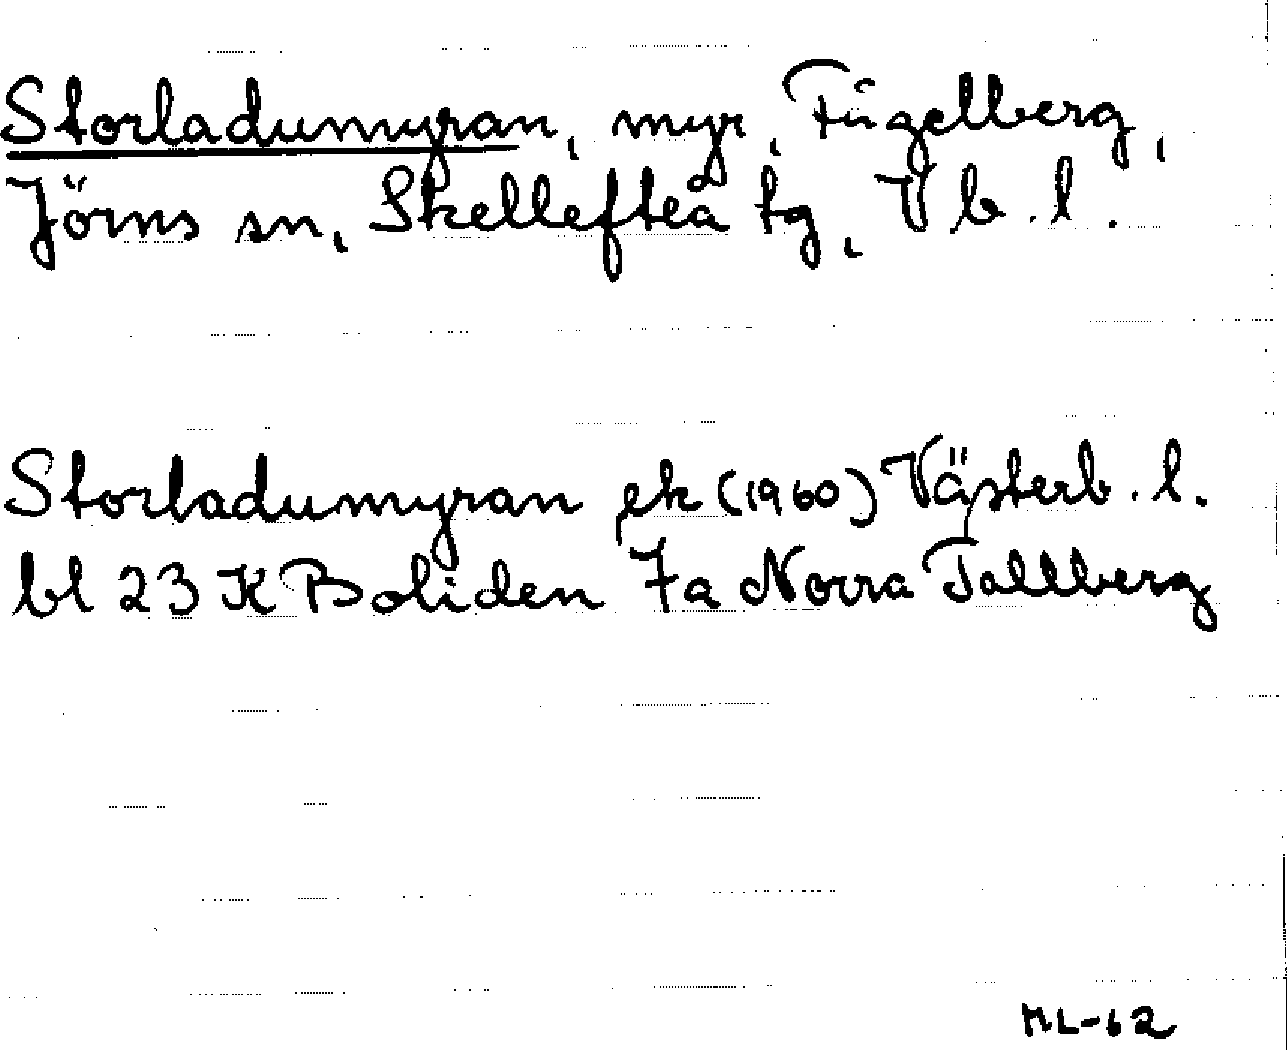 Storladumyran, myr, Fügelberg,
Jörns sn, Skellefteå tg, Vb.l.
Storladumyran ek (1960) Västerb.l.
bl 23 K Boliden 7a Norra Tallberg
ML-62